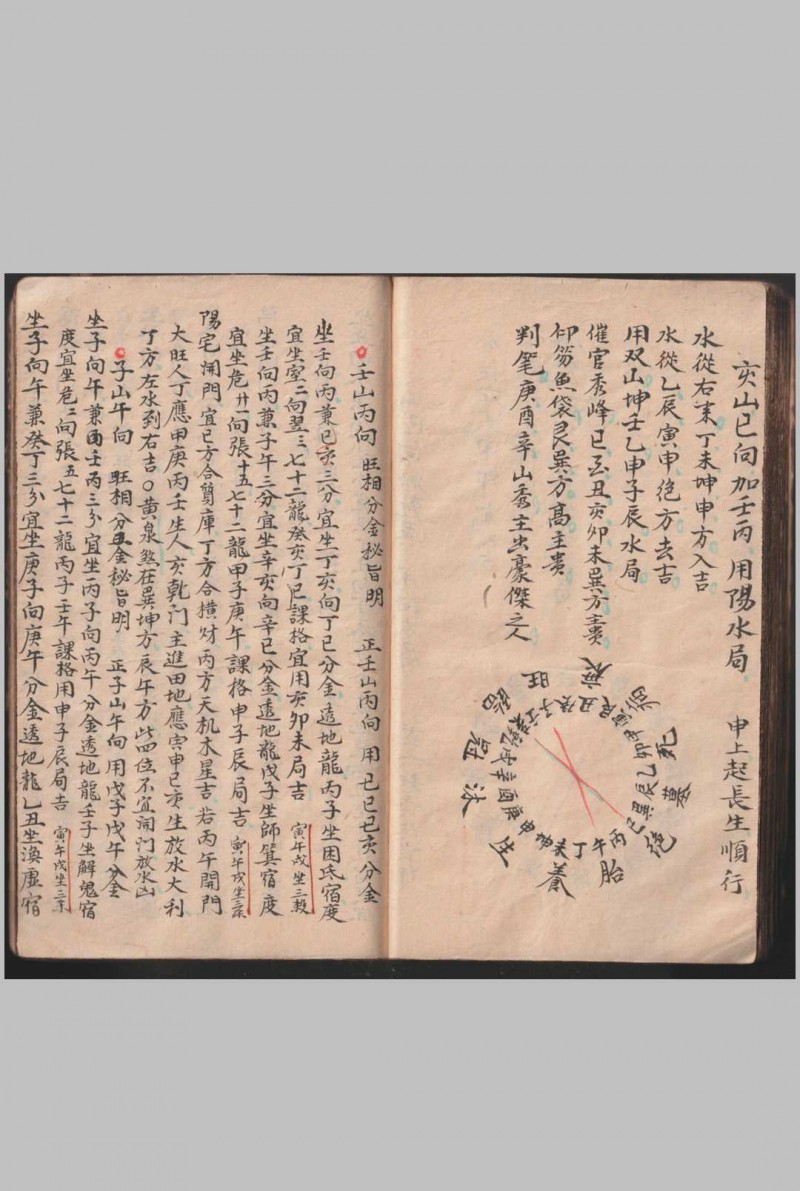 亥山巳向加壬丙 用陽水局 申上起長生順行
水從右來丁未坤申方入吉
水從乙辰寅申绝方去吉
用双山坤壬乙申子辰水局
催官秀峰巳丑亥卯未巽方主贵
仰笏魚袋艮巽方高主贵
判笔庚酉辛山秀主出豪傑之人
衰
旺
冠
沐
生
養
胎
绝
墓
死
丙午丁未坤申庚酉辛
壬山丙向 旺相分金秘旨明 正壬山丙向 用己巳己亥分金
坐壬向丙兼巳亥三分宜坐丁亥向丁巳分金透地龍丙子坐困氐宿度
宜坐室二向翌三七十二龍癸亥丁巳課格宜用亥卯未局吉 寅午戌坐三殺
坐壬向丙兼子午三分宜坐辛亥向辛巳分金透地龍戊子坐師箕宿度
宜坐危廿一向張十五七十二龍甲子庚午課格申子辰局吉 寅午戌坐三杀
陽宅開門宜巳方合貿庫丁方合横财丙方天机木星吉若丙午開門
大旺人丁應甲庚丙壬生人亥乾门主進田地應寅申巳亥生放水大利
丁方左水到右吉〇黄泉煞在巽坤方辰午方此四位不宜開门放水山
子山午向 旺相分金秘旨明 正子山午向用戊子戊午分金
坐子向午兼壬丙三分宜坐丙子向丙午分金透地龍壬子坐解鬼宿
度宜坐危二向張五七十二龍丙子壬午課格用申子辰局吉 寅午戌坐三杀
坐子向午兼癸丁三分宜坐庚子向庚午分金透地龍乙丑坐渙虚宿